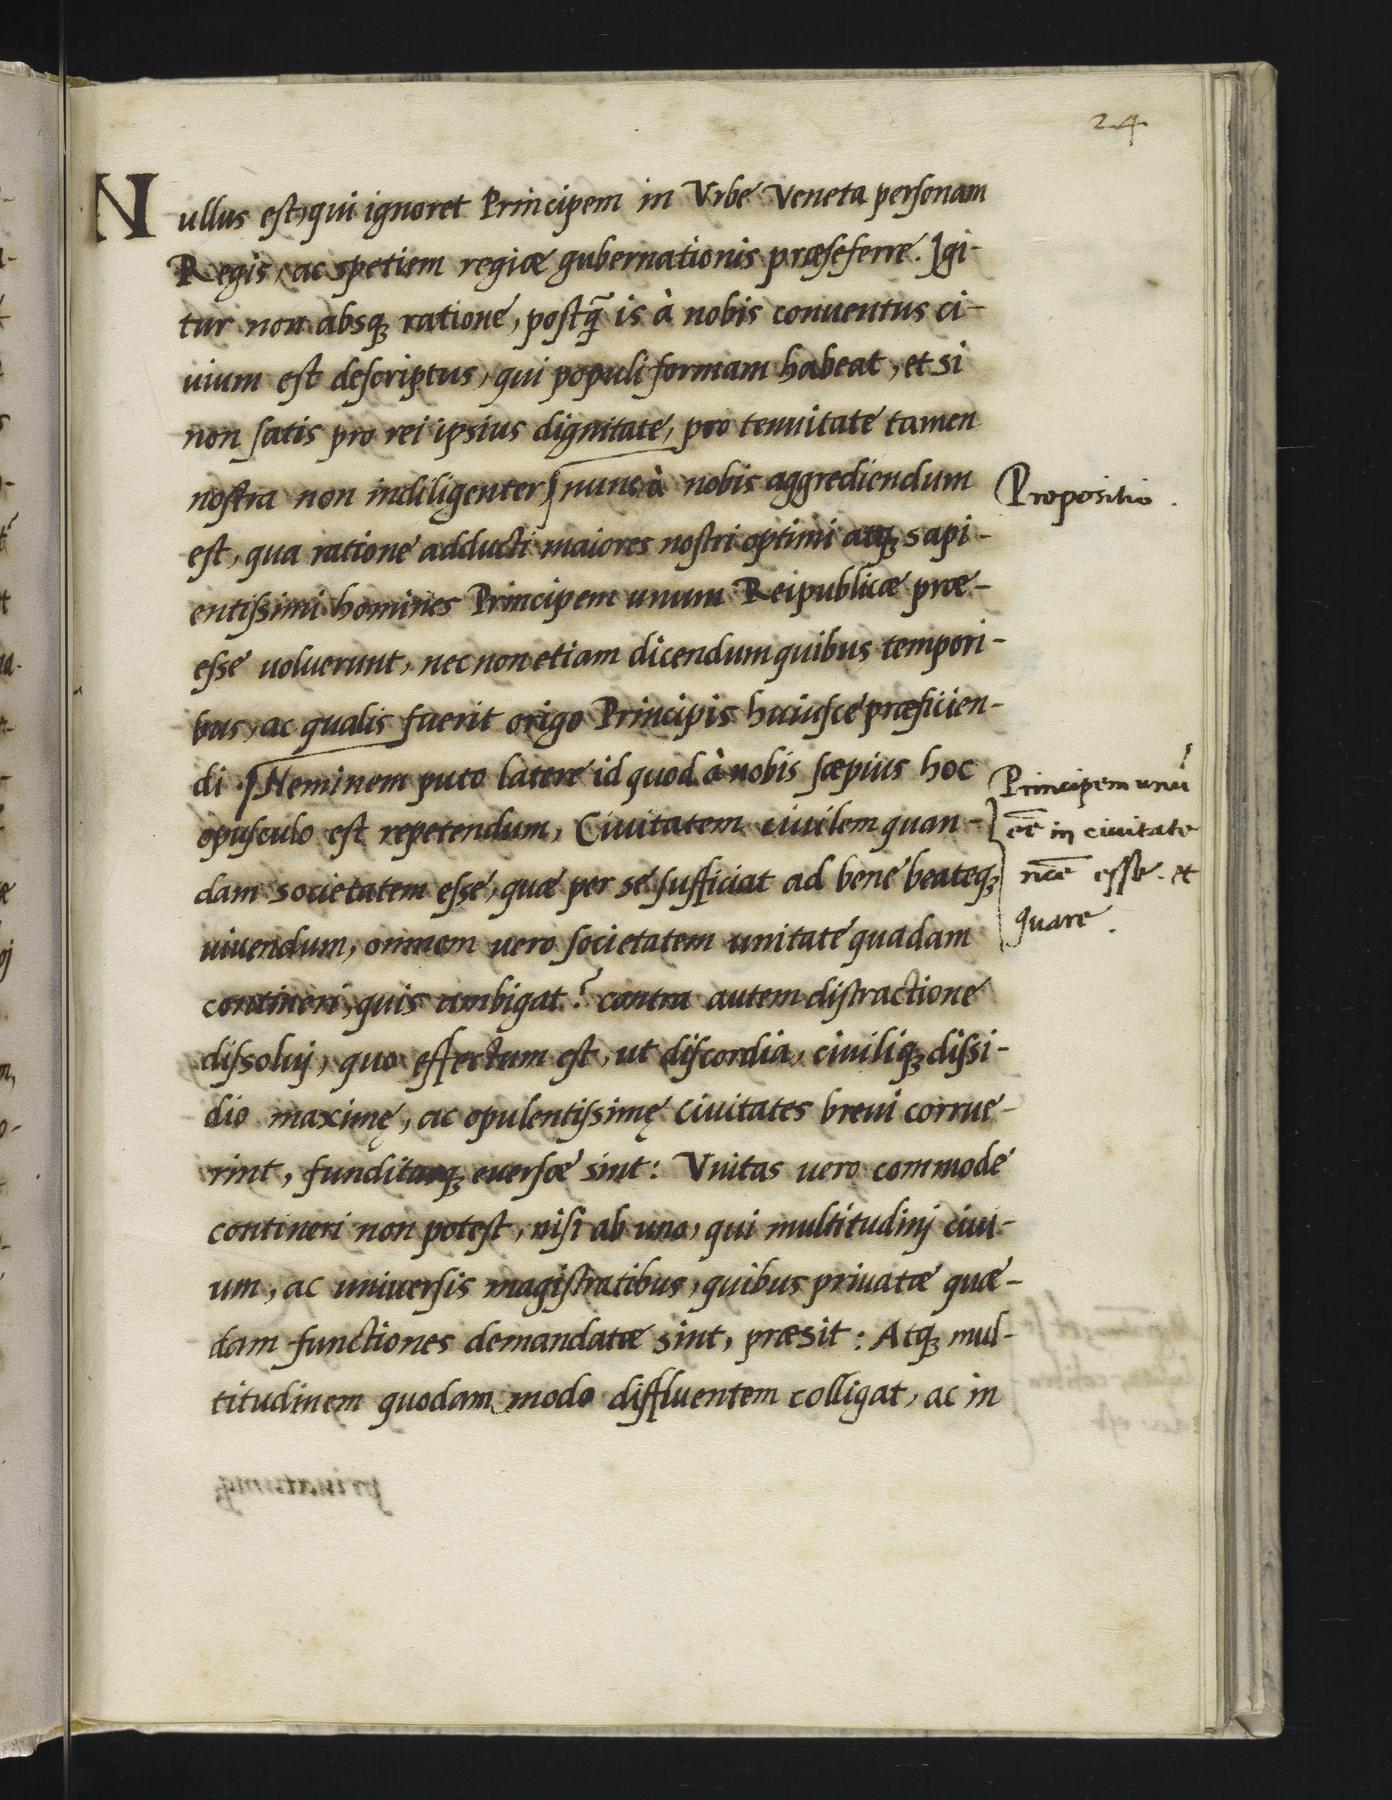 24
Nullus est, qui ignoret Principem in Vrbe Veneta personam
Regis, ac spetiem regiæ gubernationis præseferre. Igi-
tur non absq; ratione, postq̃ is à nobis conuentus ci-
uium est descriptus, qui populi formam habeat, et si
non satis pro rei ipsius dignitate, pro tenuitate tamen
nostra non indiligenter, nunc à nobis aggrediendum
Propositio.
est, qua ratione adducti maiores nostri optimi atq; sapi-
entissimi homines Principem unum Reipublicæ præ-
esse uoluerunt, nec non etiam dicendum quibus tempori-
bus, ac qualis fuerit origo Principis huiusce præficien-
di. Neminem puto latere id quod à nobis sæpius hoc
opusculo est repetendum, Ciuitatem ciuilem quan-
dam societatem esse, quæ per se sufficiat ad bene beateq;
uiuendum, omnem uero societatem unitate quadam
Principem unũ
eē in ciuitate
ncē esse. et
quare.
contineri, quis ambigat? contra autem distractione
dissolvij, quo effectum est, ut discordia, ciuiliq; dissi-
dio maximę, ac opulentissimę ciuitates breui corrue-
rint, funditusq; euersæ sint: Vnitas uero commode
contineri non potest, nisi ab uno, qui multitudinj ciui-
um, ac uniuersis magistratibus, quibus priuatæ quæ-
dam functiones demandatæ sint, præsit: Atq; mul-
titudinem quodam modo diffluentem colligat, ac in